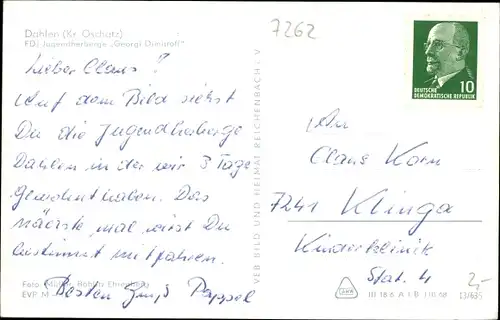 7262
Dahlen (Kr. Oschatz)
FDJ-Jugendherberge „Georgi Dimitroff"
Lieber Claus!
Auf dem Bild siehst
Du die Jugendherberge
Dahlen in der wir 3 Tage
gewohnt haben. Das
nächste mal wirst Du
bestimmt mitfahren.
Besten Gruß Pappel
Foto: Müller, Bohlitz Ehrenberg
EVP M
VEB BILD UND HEIMAT REICHENBACH I. V.
10
DEUTSCHE
DEMOKRATISCHE REPUBLIK
An
Claus Korn
7241 Klinga
Kinderklinik
Stat. 4
III 18 6 A 1 B
13/635
2,-